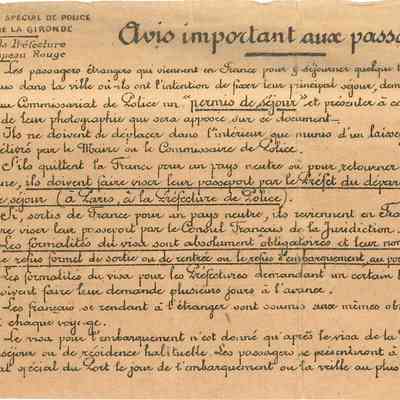 SPÉCIAL DE POLICE
DE LA GIRONDE
Préfecture
Rouge
Avis important aux passa
Les passagers étrangers qui viennent en France pour y séjourner quelque t
dans la ville où ils ont l'intention de fixer leur principal séjour, dem
au Commissariat de Police un "permis de séjour" et présenter à ce
de leur photographie qui sera apposée sur ce document.
Ils ne doivent se déplacer dans l'intérieur que munis d'un laisse
délivré par le Maire ou le Commissaire de Police.
S'ils quittent la France pour un pays neutre ou pour retourner
ils doivent faire viser leur passeport par le Préfet du dépar
séjour (à Paris, à la Préfecture de Police).
Si, sortis de France pour un pays neutre, ils reviennent en Fra
viser leur passeport par le Consul Français de la Juridiction.
Les formalités du visa sont absolument obligatoires et leur no
refus formel de sortie ou de rentrée ou le refus d'embarquement au po
Les formalités de visa pour les Préfectures demandant un certain t
doivent faire leur demande plusieurs jours à l'avance.
Les français se rendant à l'étranger sont soumis aux mêmes ob
à chaque voyage.
Le visa pour l'embarquement n'est donné qu'après le visa de la
séjour ou de résidence habituelle. Les passagers se présenteront à
spécial du Port le jour de l'embarquement ou la veille au plus